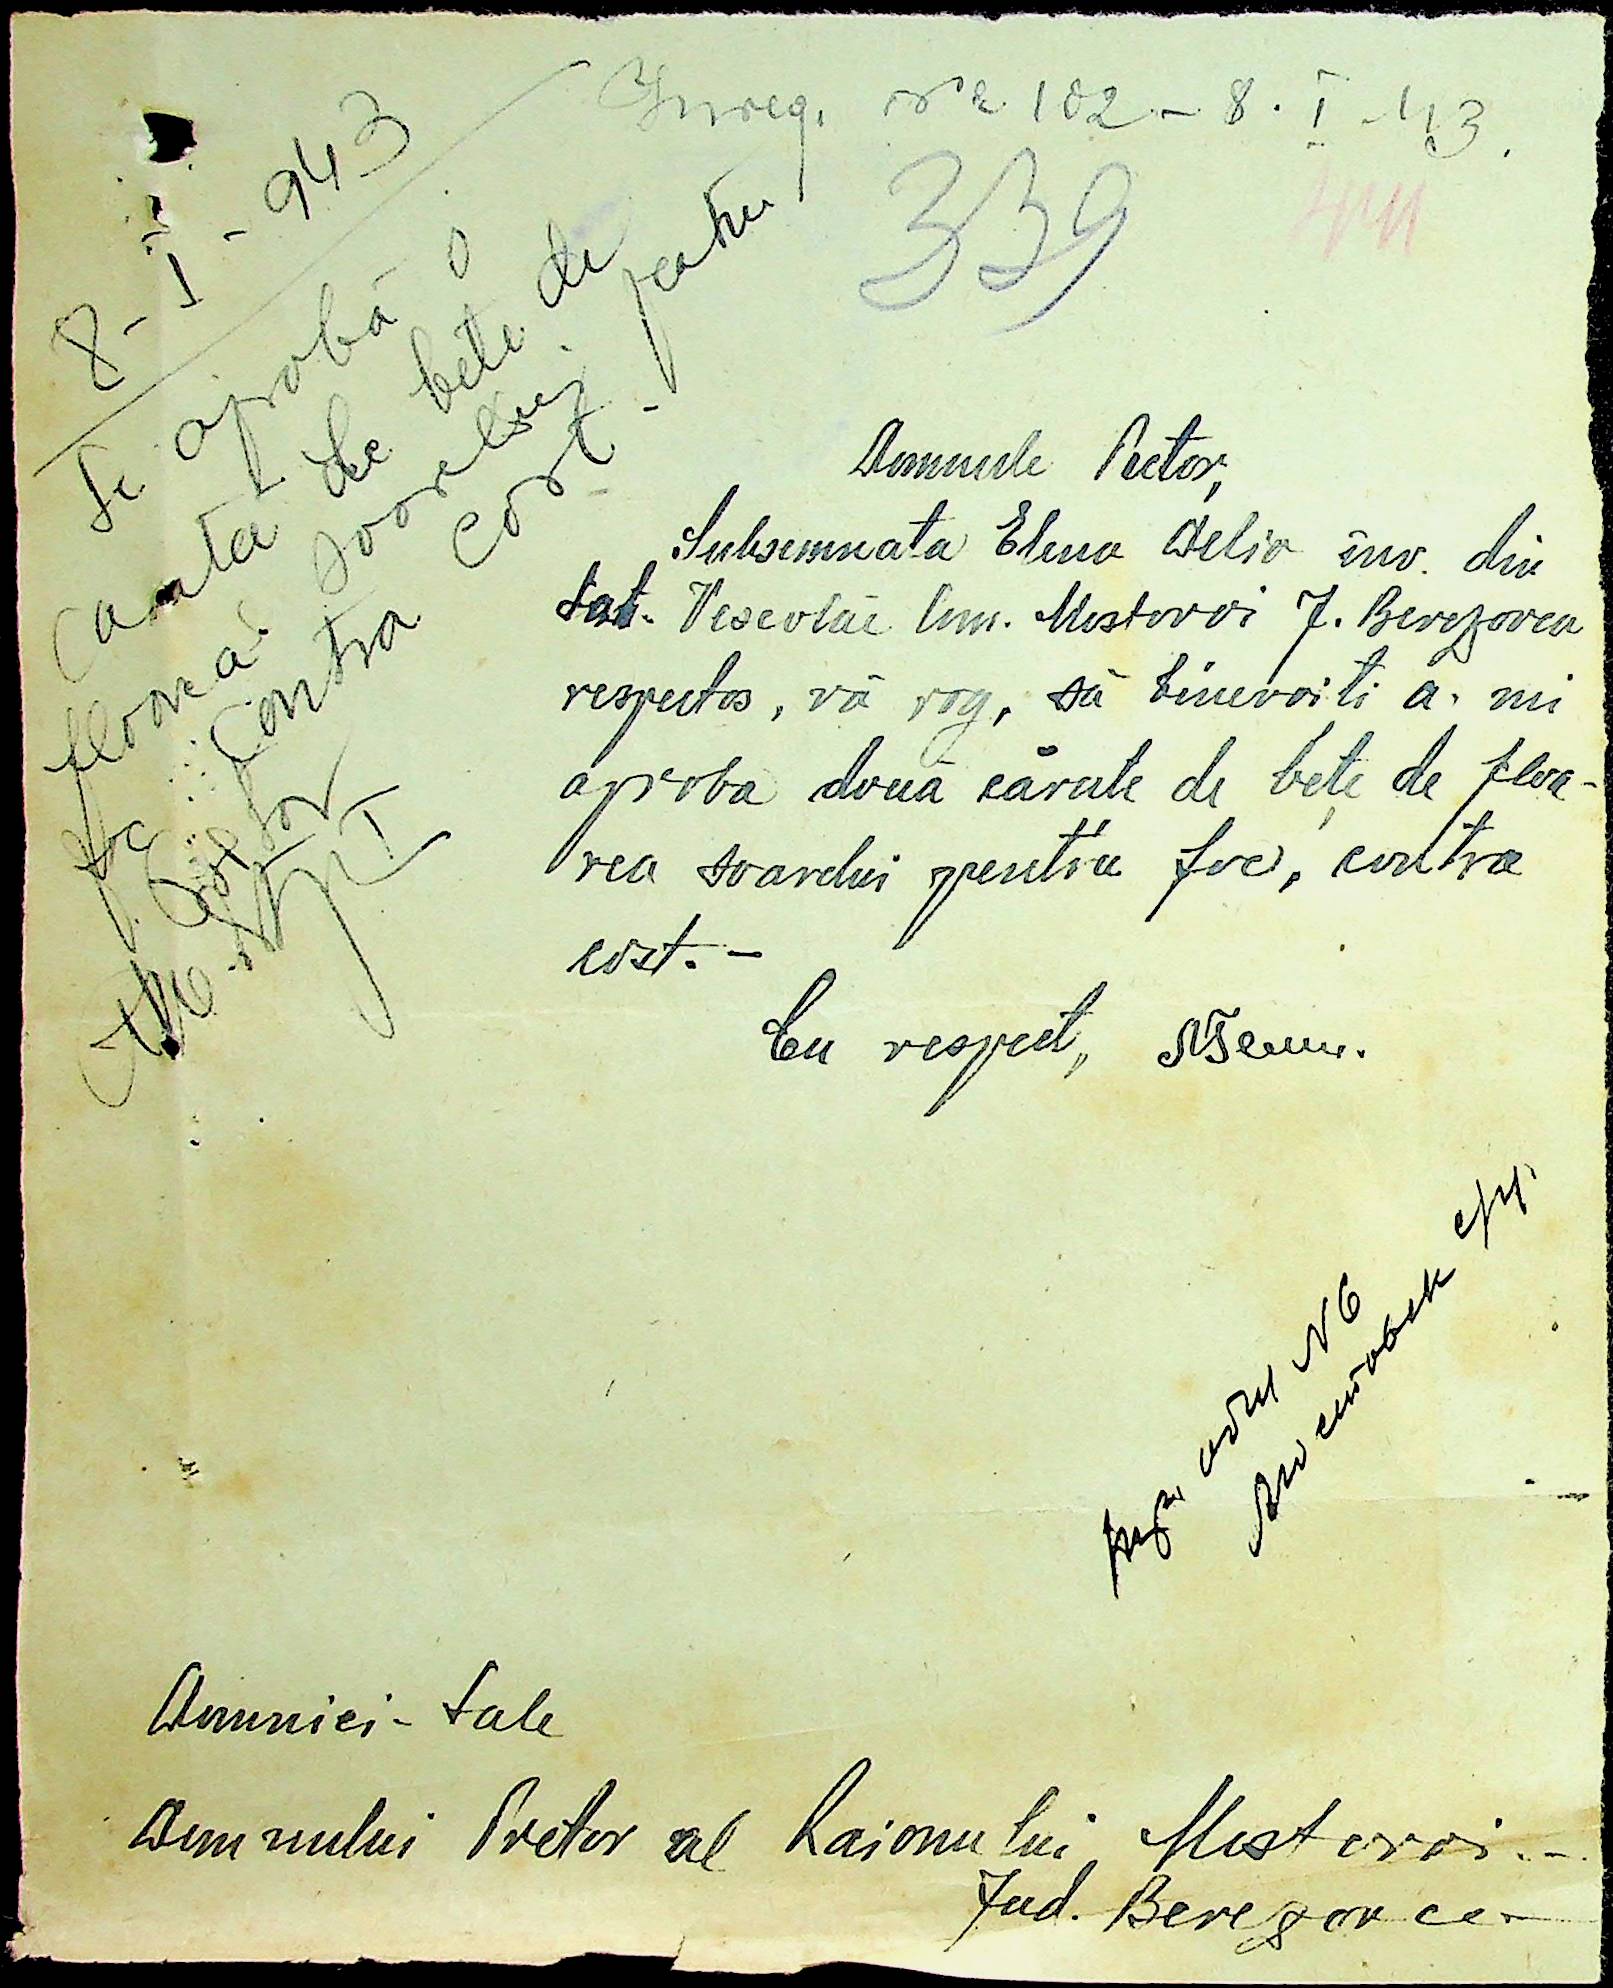 Inreg. Nr 102 - 8. I 43.
339
8 - I - 943
Se aprobă o
caruta de bete de
floarea soarelui pentru
foc contra cost -
Domnule Pretor,
Subsemnata Elena Delia înv. din
sat. Veseolăe Com. Mostovoi J. Berezovca
respectos, vă rog, să binevoiti a-mi
aproba două cărute de bețe de floa-
rea soarelui pentru foc, contra
cost. -
Cu respect,
Domniei-Sale
Domnului Pretor al Raionului Mostovoi. -
Jud. Berezovca -